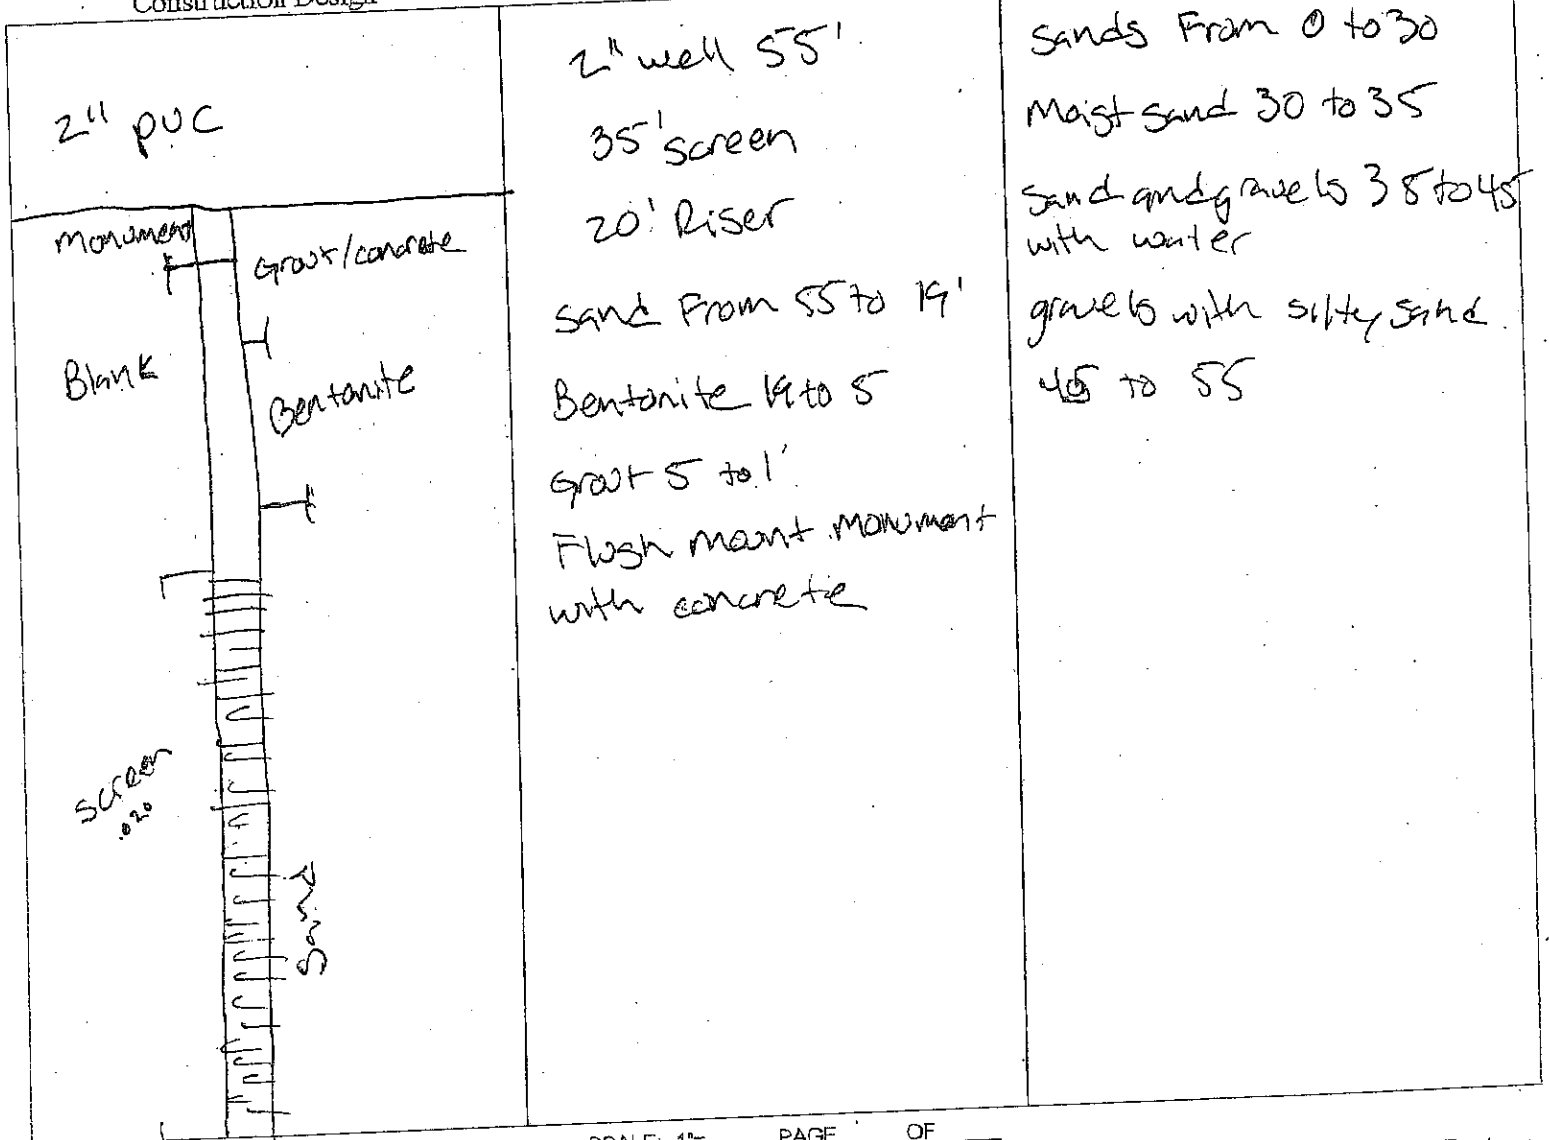 Construction Design
2" PVC
Monument
Grout/concrete
Blank
Bentonite
screen
.020
Sand
2" well 55'
35' screen
20' Riser
sand From 55 to 19'
Bentonite 19 to 5
Grout 5 to 1'
Flush mount monument
with concrete
Sands From 0 to 30
Moist sand 30 to 35
Sand and gravels 35 to 45
with water
gravels with silty sand.
45 to 55
SCALE: 1"=
PAGE
OF